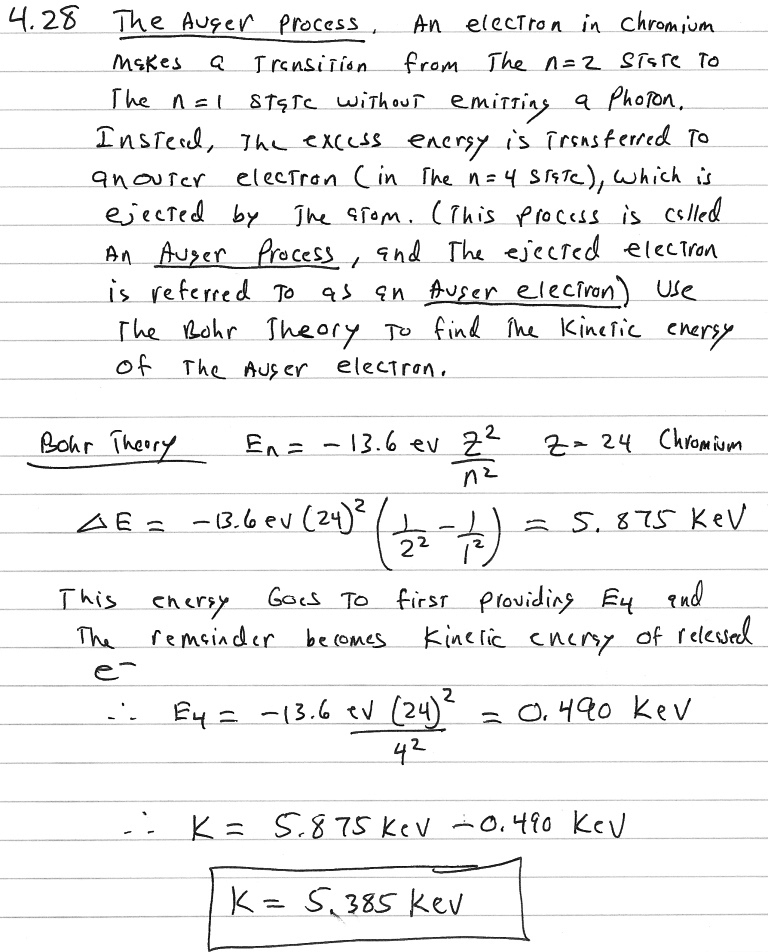 4.28 The Auger Process. An electron in chromium
makes a transition from the n=2 state to
the n=1 state without emitting a photon.
Instead, the excess energy is transferred to
an outer electron (in the n=4 state), which is
ejected by the atom. (This process is called
An Auger Process, and the ejected electron
is referred to as an Auger electron) Use
the Bohr Theory to find the kinetic energy
of the Auger electron.
Bohr Theory En = -13.6 ev Z²/n² Z = 24 Chromium
ΔE = -13.6 ev (24)² (1/2² - 1/1²) = 5.875 KeV
This energy Goes to first providing E4 and
The remainder becomes kinetic energy of released
e⁻
∴ E4 = -13.6 eV (24)²/4² = 0.490 KeV
∴ K = 5.875 KeV - 0.490 KeV
K = 5.385 KeV